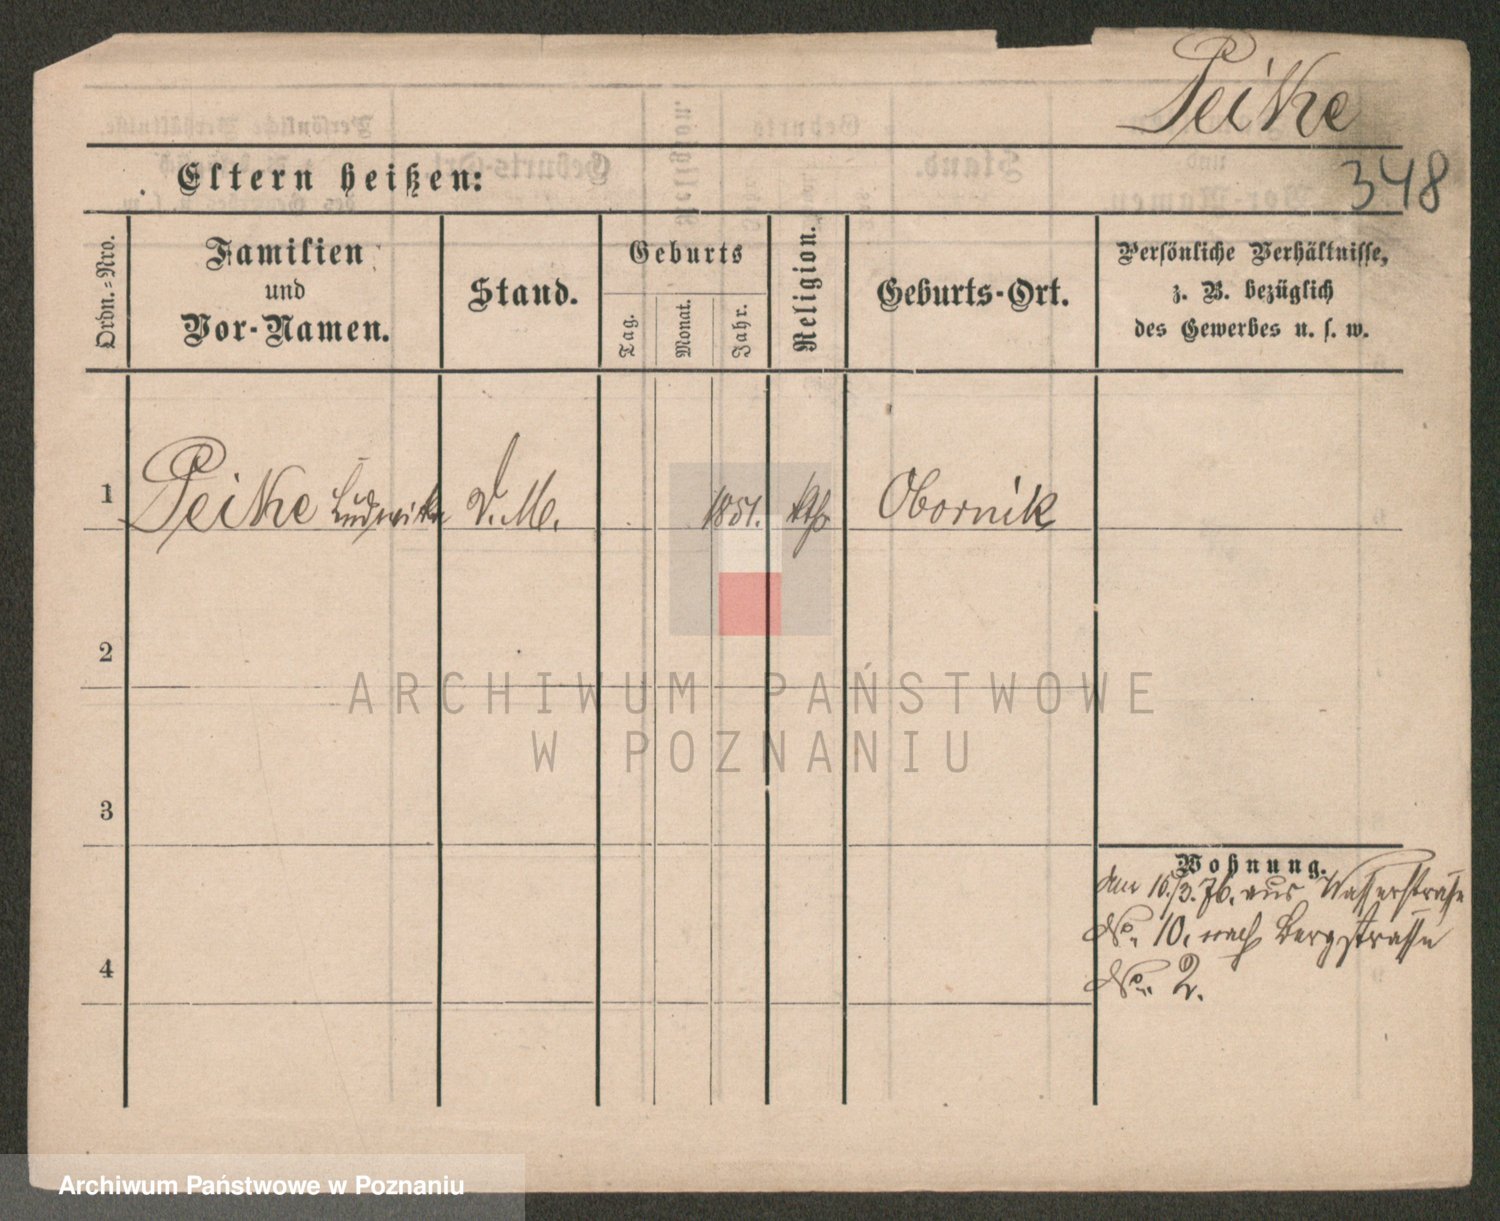 Peitke
348
Eltern heißen:
Ordn.-Nro.
Familien
und
Vor-Namen.
Stand.
Geburts
Tag.
Monat.
Jahr.
Religion.
Geburts-Ort.
Persönliche Verhältnisse,
z. B. bezüglich
des Gewerbes u. s. w.
1 Peitke Ludwika D. M. 1851. kth Obornik
2
3
4
Wohnung.
am 16./3. 76. aus Wasserstraße
No. 10. nach Bergstrasse
No. 2.
ARCHIWUM PAŃSTWOWE
W POZNANIU
Archiwum Państwowe w Poznaniu